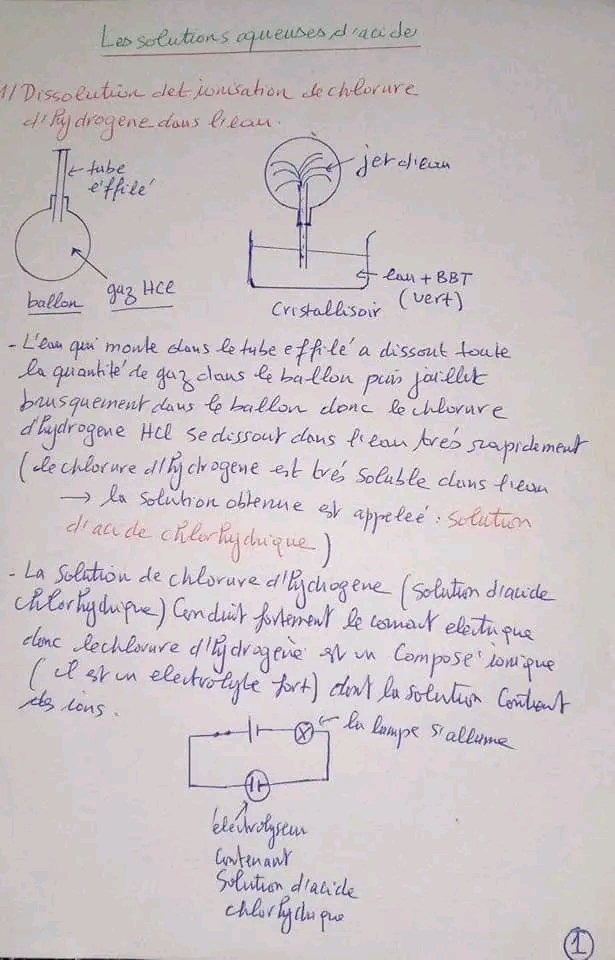 Les solutions aqueuses d'acide
1/ Dissolution et ionisation de chlorure
d'hydrogène dans l'eau.
tube
effilé
jet d'eau
gaz HCl
ballon
eau + BBT
(vert)
Cristallisoir
- L'eau qui monte dans le tube effilé a dissout toute
la quantité de gaz dans le ballon puis jaillit
brusquement dans le ballon donc le chlorure
d'hydrogene HCl se dissout dans l'eau très rapidement
(le chlorure d'hydrogene est très soluble dans l'eau
→ la solution obtenue est appelée : solution
d'acide chlorhydrique)
- La solution de chlorure d'hydrogène (solution d'acide
chlorhydrique) Conduit fortement le courant electrique
donc le chlorure d'hydrogène est un Composé ionique
(il est un electrolyte fort) dont la solution Contient
des ions.
la lampe s'allume
électrolyseur
Contenant
Solution d'acide
chlorhydrique
1